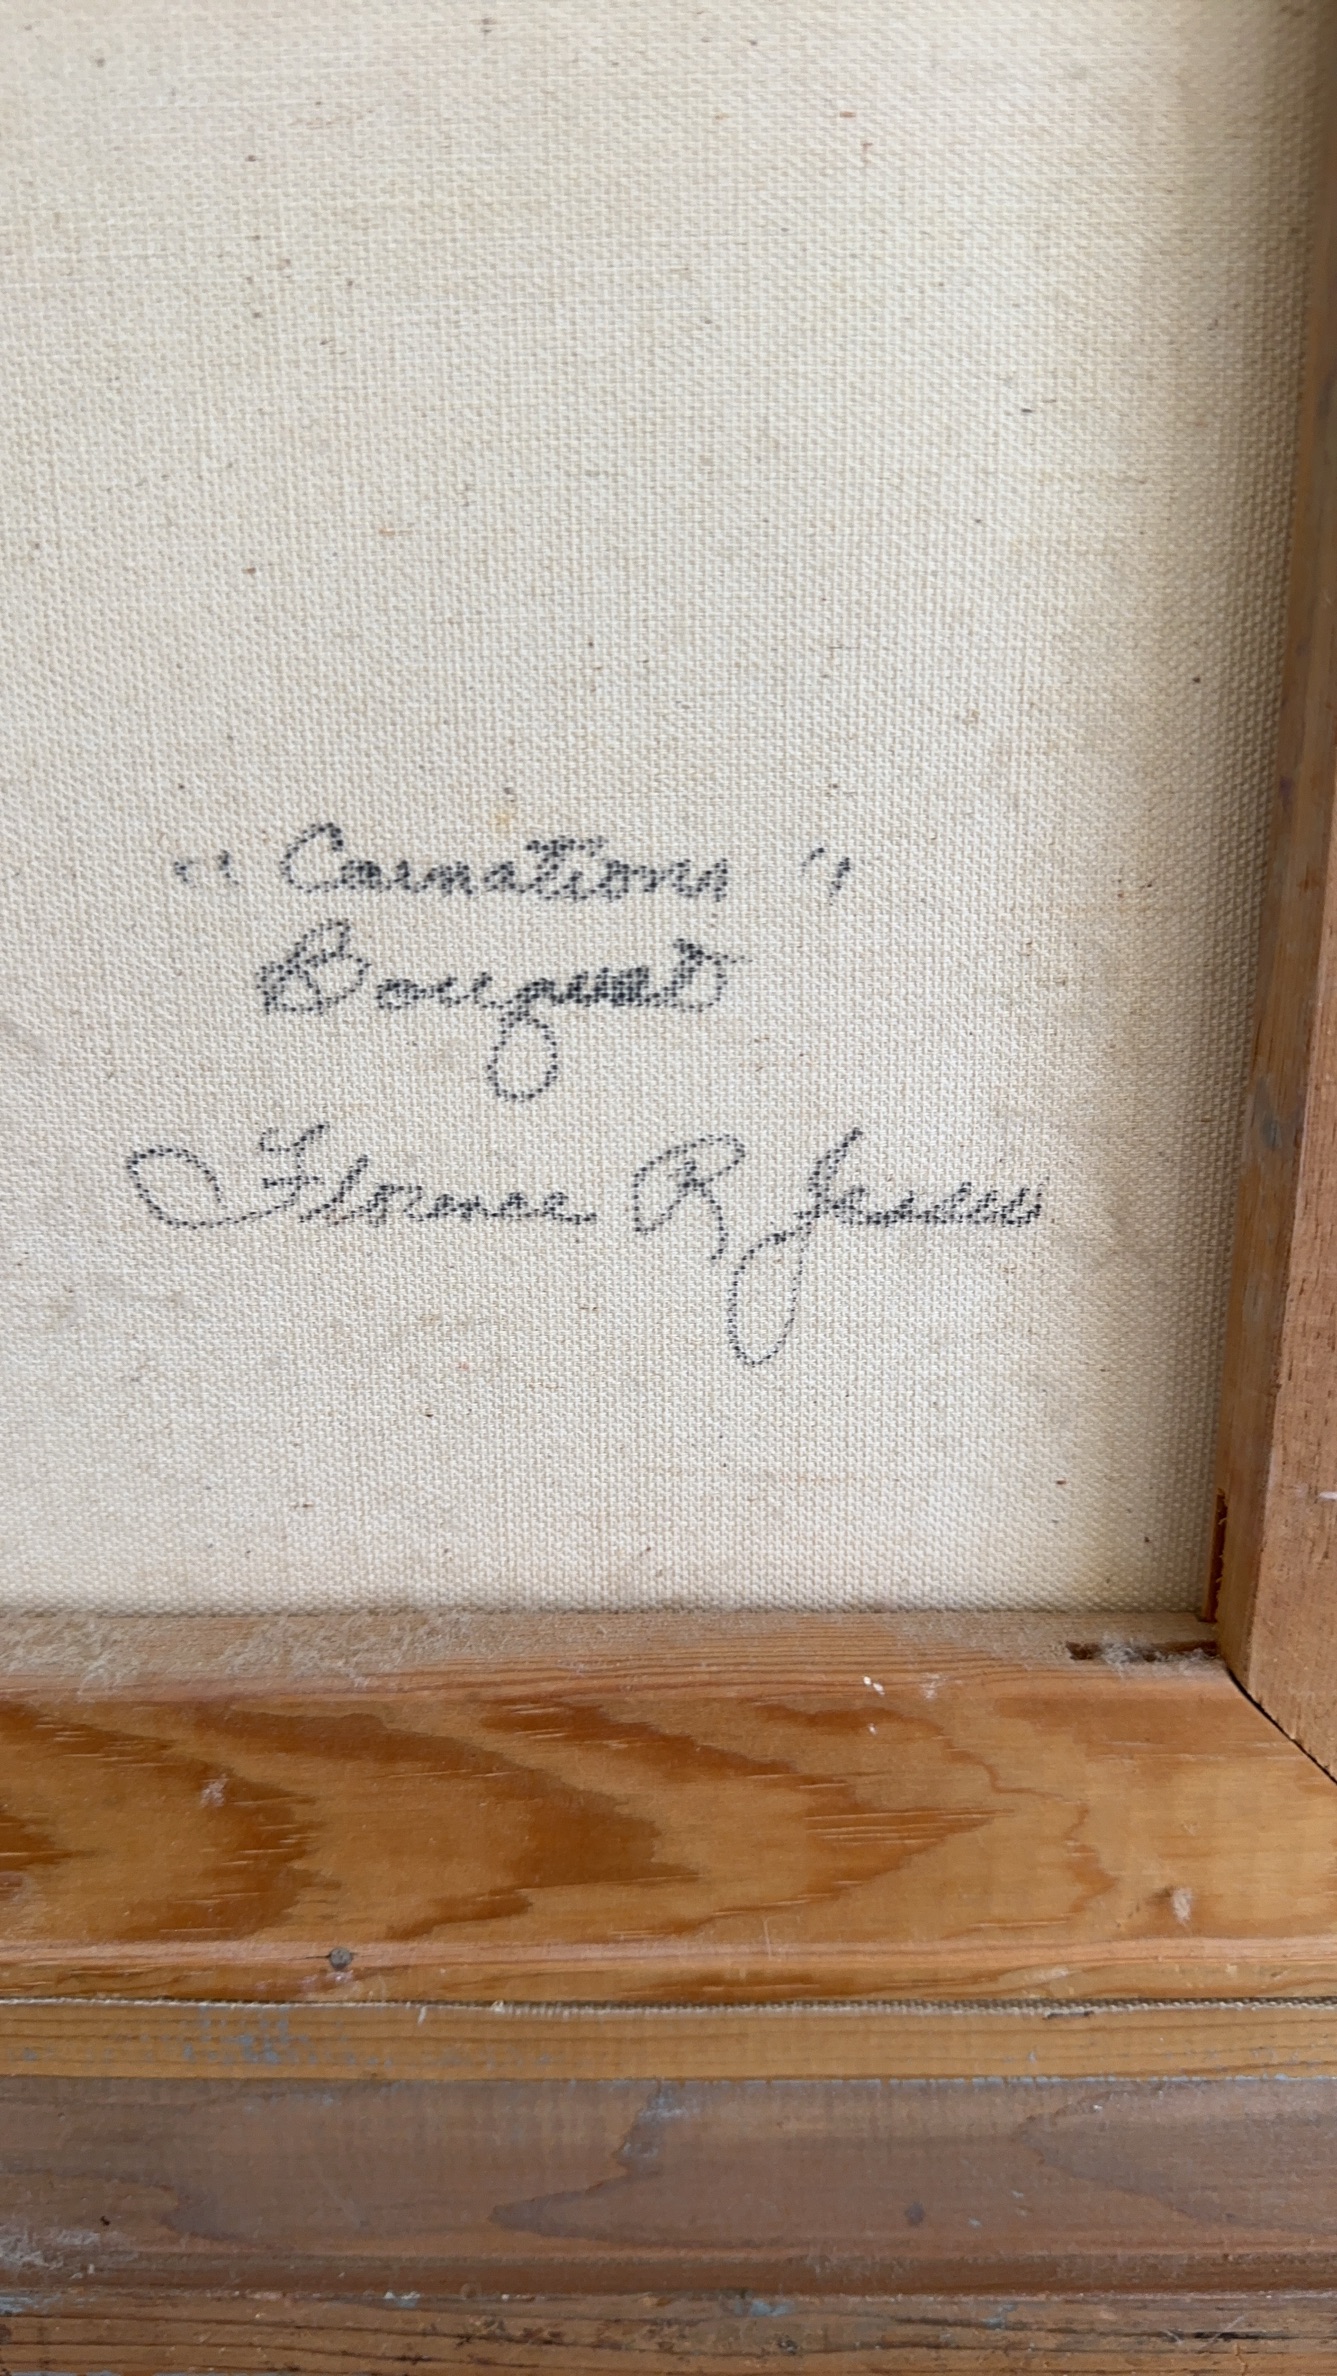 "Carnations"
Bouquet
Florence R